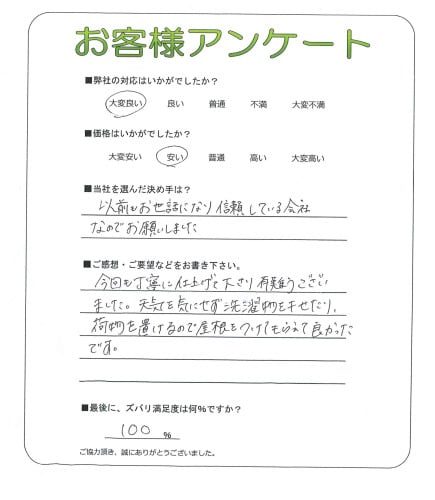 お客様アンケート
■弊社の対応はいかがでしたか？
大変良い 良い 普通 不満 大変不満
■価格はいかがでしたか？
大変安い 安い 普通 高い 大変高い
■当社を選んだ決め手は？
以前もお世話になり信頼している会社
なのでお願いしました
■ご感想・ご要望などをお書き下さい。
今回も丁寧に仕上げて下さり有難うござい
ました。天気を気にせず洗濯物を干せたり、
荷物を置けるので屋根をつけてもらえて良かった
です。
■最後に、ズバリ満足度は何%ですか？
100 %
ご協力頂き、誠にありがとうございました。